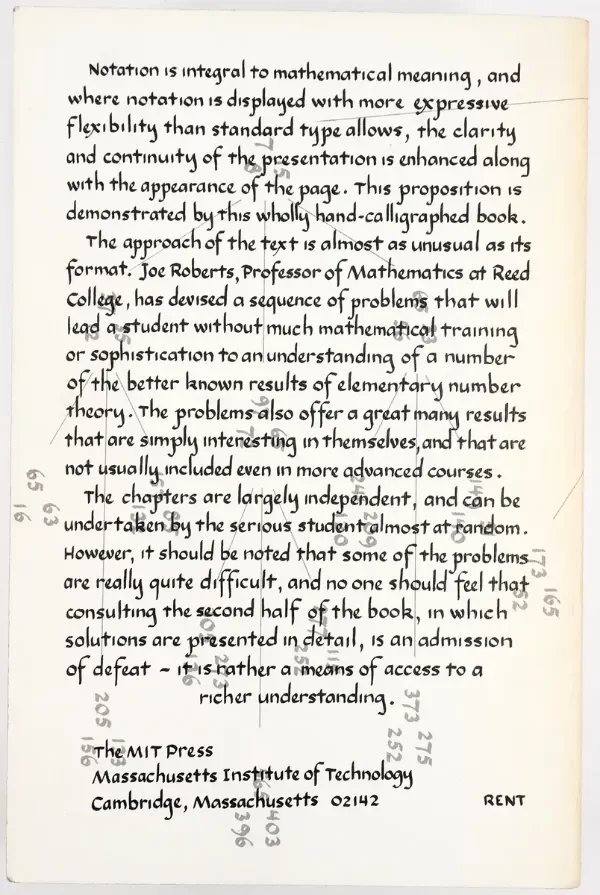 Notation is integral to mathematical meaning, and
where notation is displayed with more expressive
flexibility than standard type allows, the clarity
and continuity of the presentation is enhanced along
with the appearance of the page. This proposition is
demonstrated by this wholly hand-calligraphed book.
The approach of the text is almost as unusual as its
format. Joe Roberts, Professor of Mathematics at Reed
College, has devised a sequence of problems that will
lead a student without much mathematical training
or sophistication to an understanding of a number
of the better known results of elementary number
theory. The problems also offer a great many results
that are simply interesting in themselves, and that are
not usually included even in more advanced courses.
The chapters are largely independent, and can be
undertaken by the serious student almost at random.
However, it should be noted that some of the problems
are really quite difficult, and no one should feel that
consulting the second half of the book, in which
solutions are presented in detail, is an admission
of defeat - it is rather a means of access to a
richer understanding.
The MIT Press
Massachusetts Institute of Technology
Cambridge, Massachusetts 02142
RENT
65
63
16
173
165
52
205
133
156
373
275
252
403
396